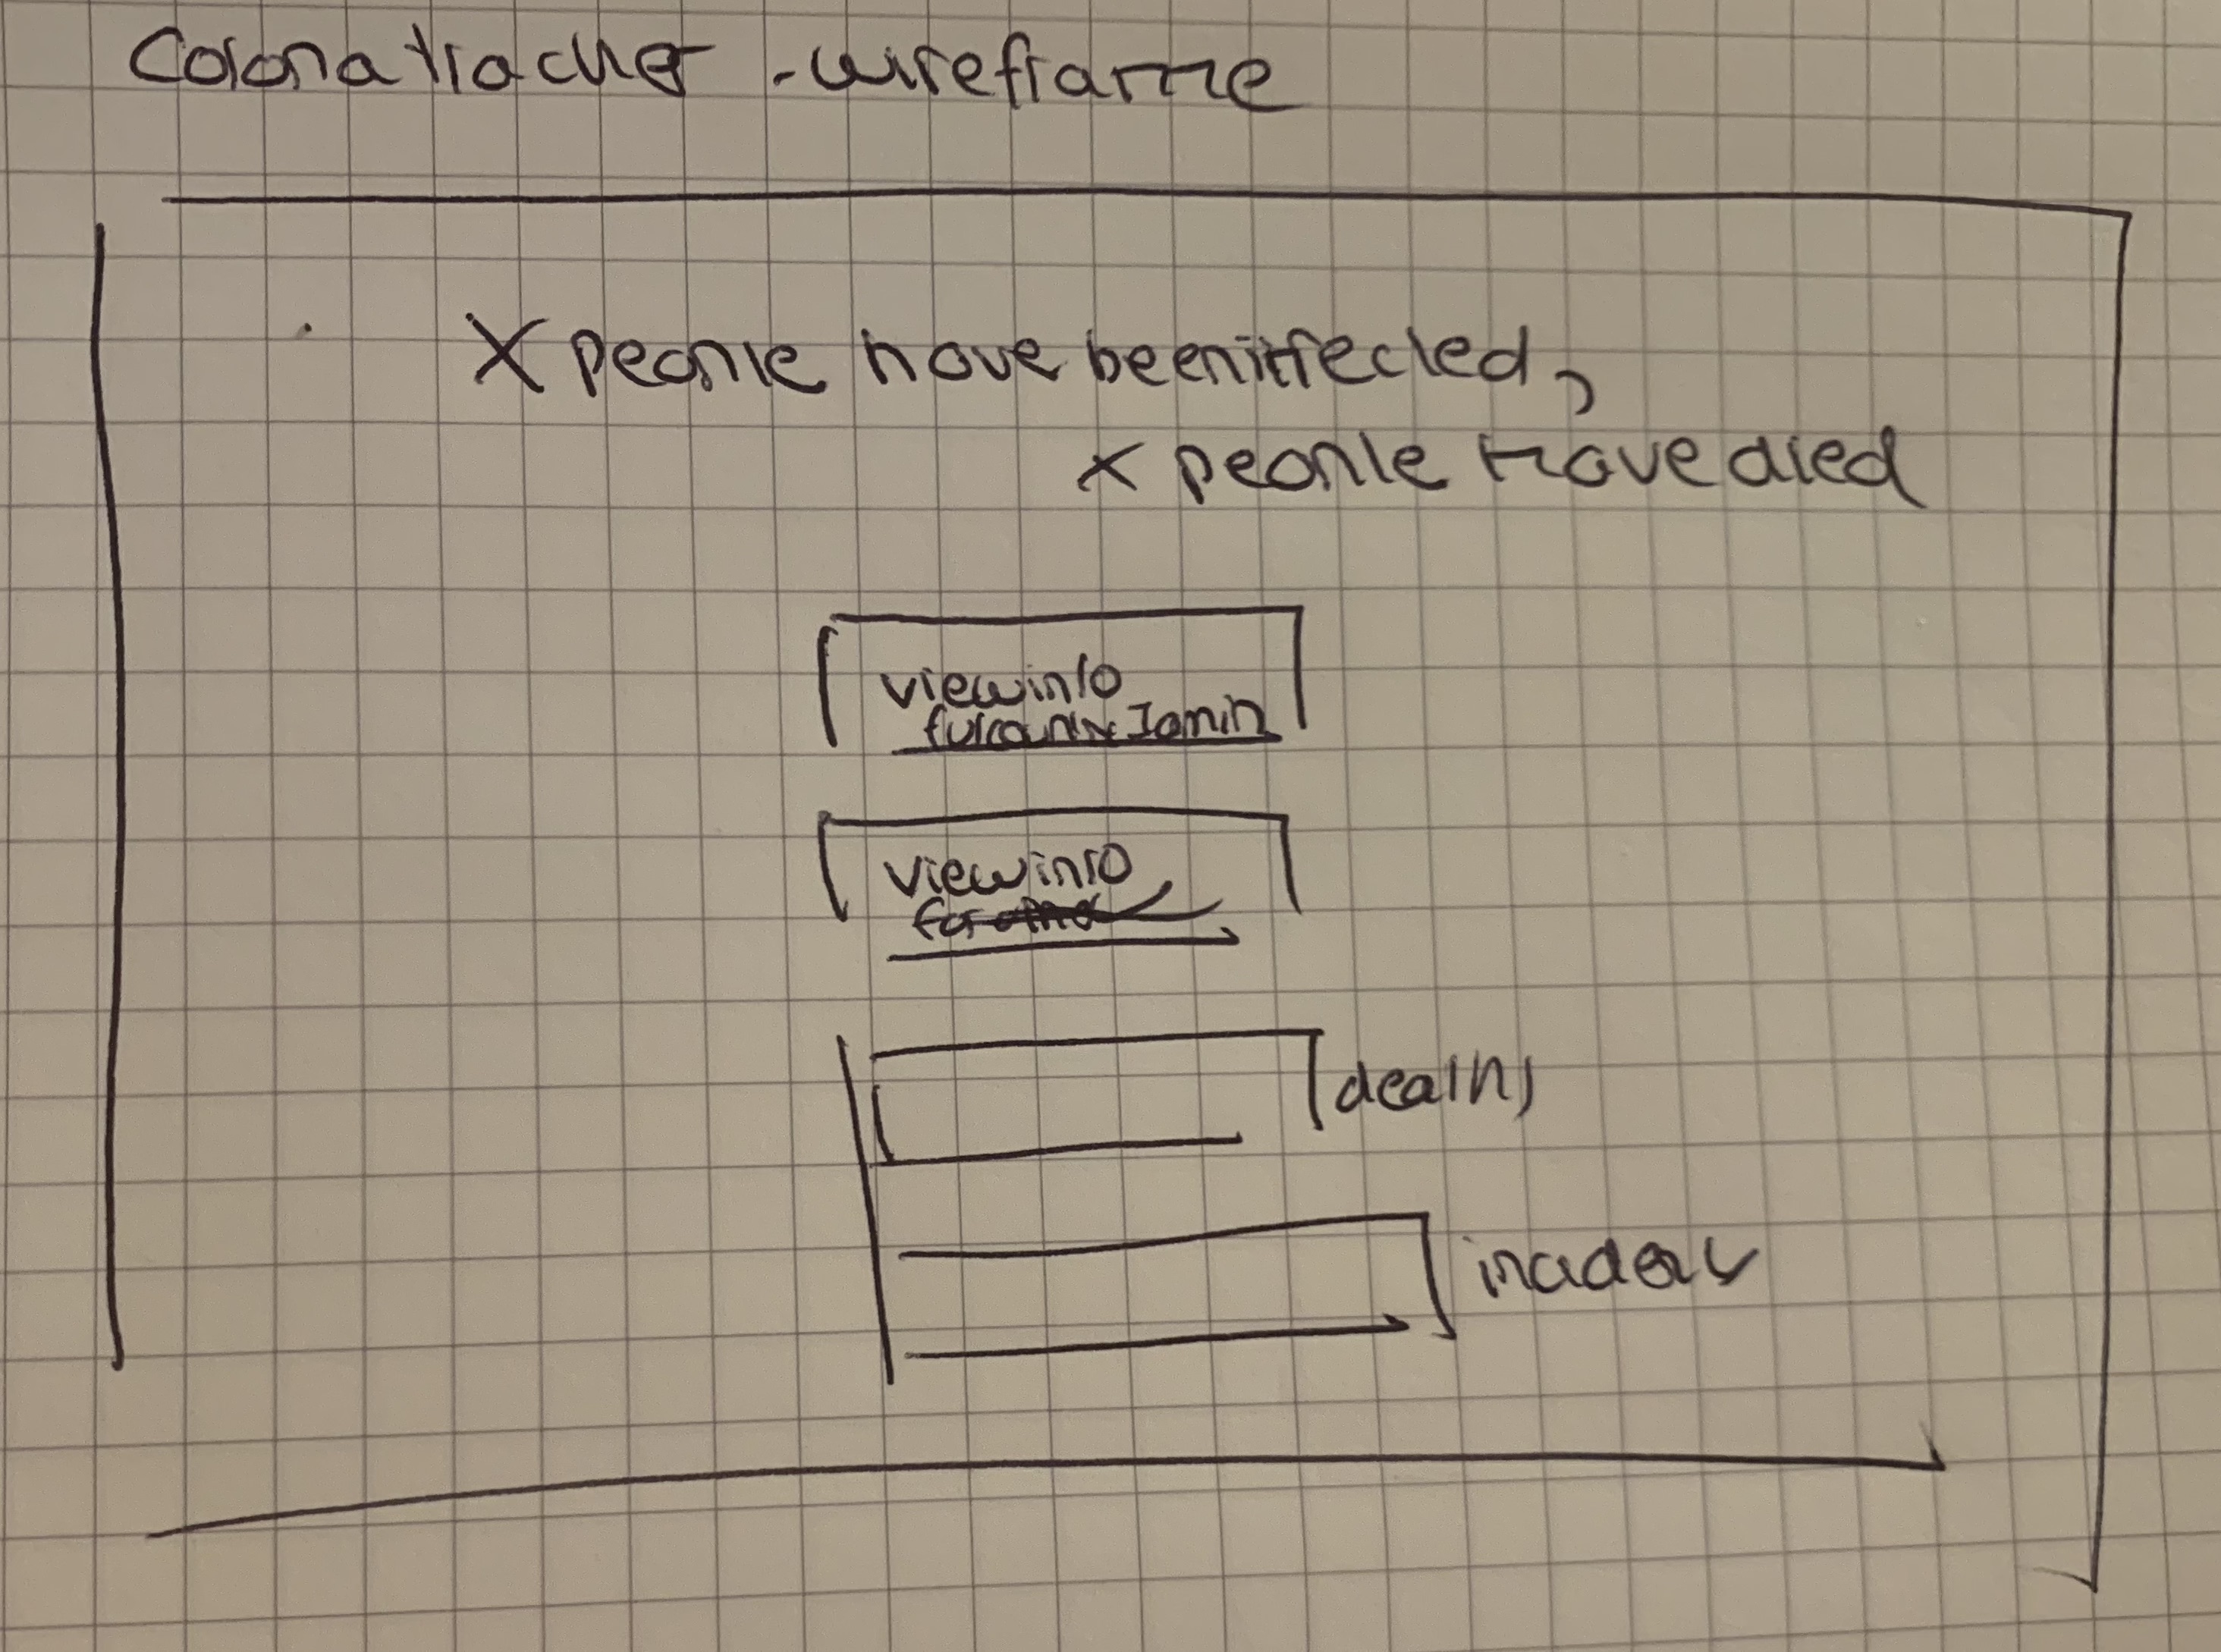 Corona tracker - wireframe
X people have been infected,
x people have died
view info
for country I am in
view info
for
deaths